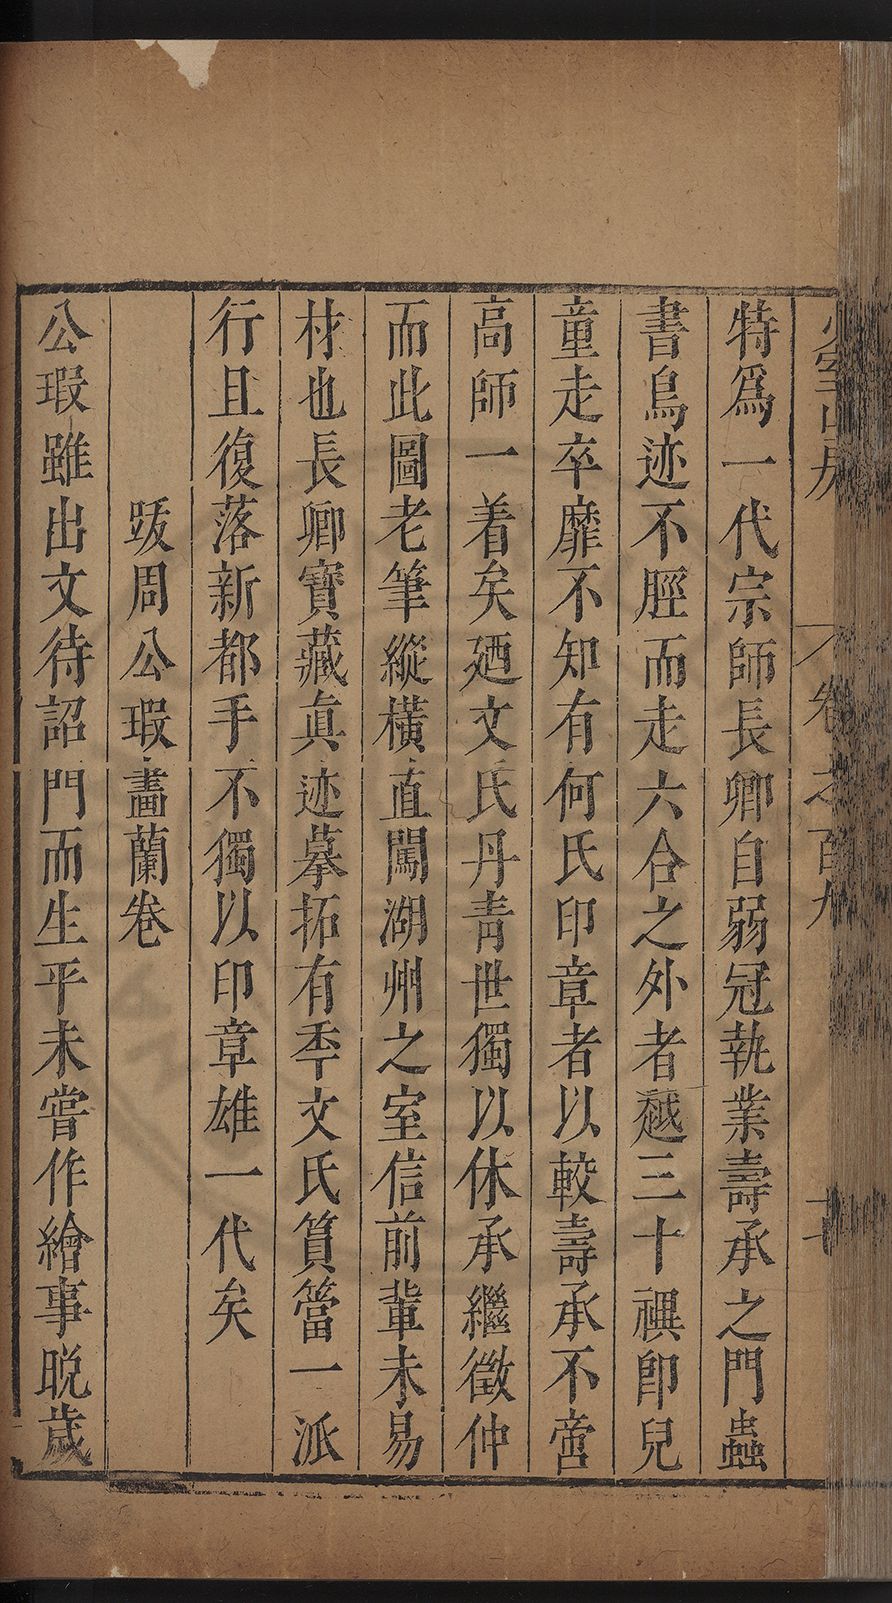 少室山房
卷之百九
十七
特爲一代宗師長卿自弱冠執業壽承之門蟲
書鳥迹不脛而走六合之外者越三十禩卽兒
童走卒靡不知有何氏印章者以較壽承不啻
高師一着矣廼文氏丹青世獨以休承繼徵仲
而此圖老筆縱橫直闖湖州之室信前輩未易
材也長卿寶藏眞迹摹拓有季文氏篔簹一派
行且復落新都手不獨以印章雄一代矣
跋周公瑕畫蘭卷
公瑕雖出文待詔門而生平未嘗作繪事晚歲